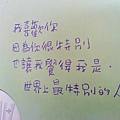 我喜歡你
因為你很特別
也讓我覺得我是
世界上最特別的人